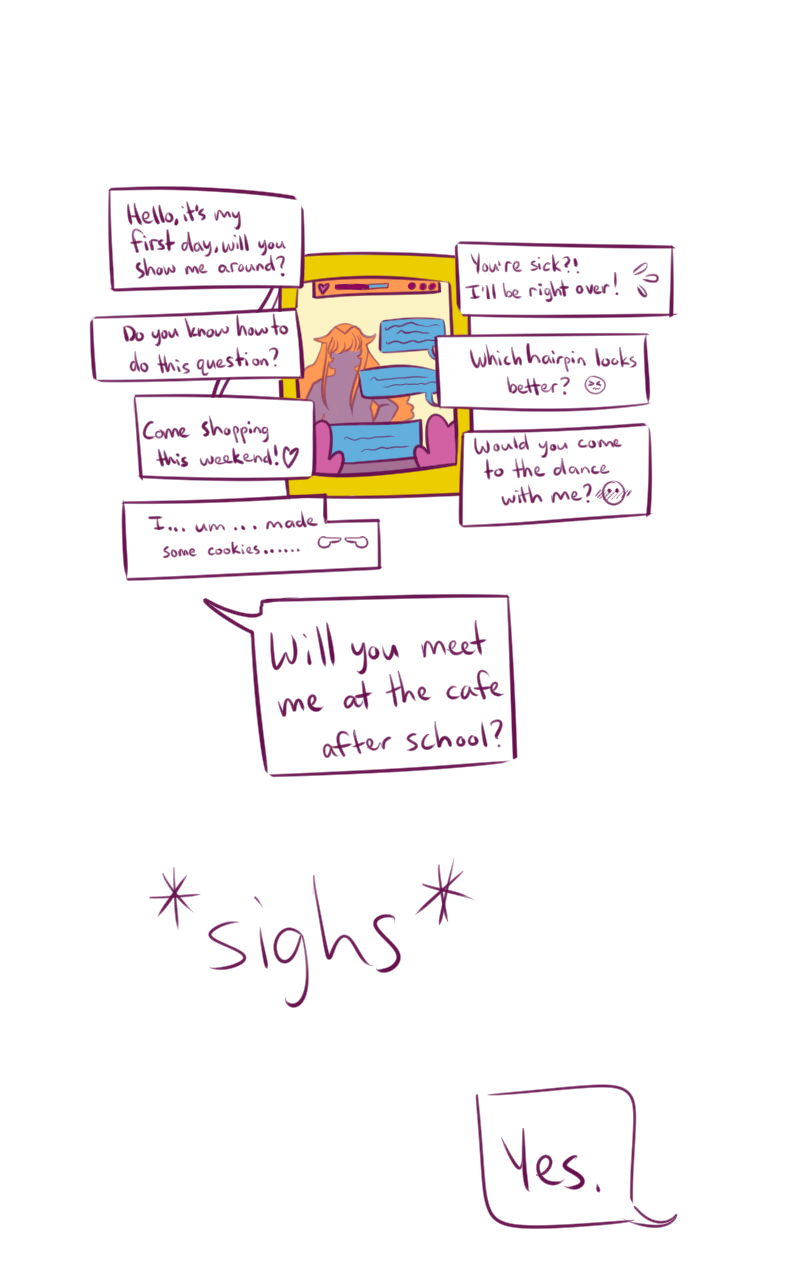 Hello, it's my
first day, will you
show me around?
Do you know how to
do this question?
Come shopping
this weekend!♡
I... um ... made
some cookies......
You're sick?!
I'll be right over!
Which hairpin looks
better?
Would you come
to the dance
with me?
Will you meet
me at the cafe
after school?
*sighs*
Yes.